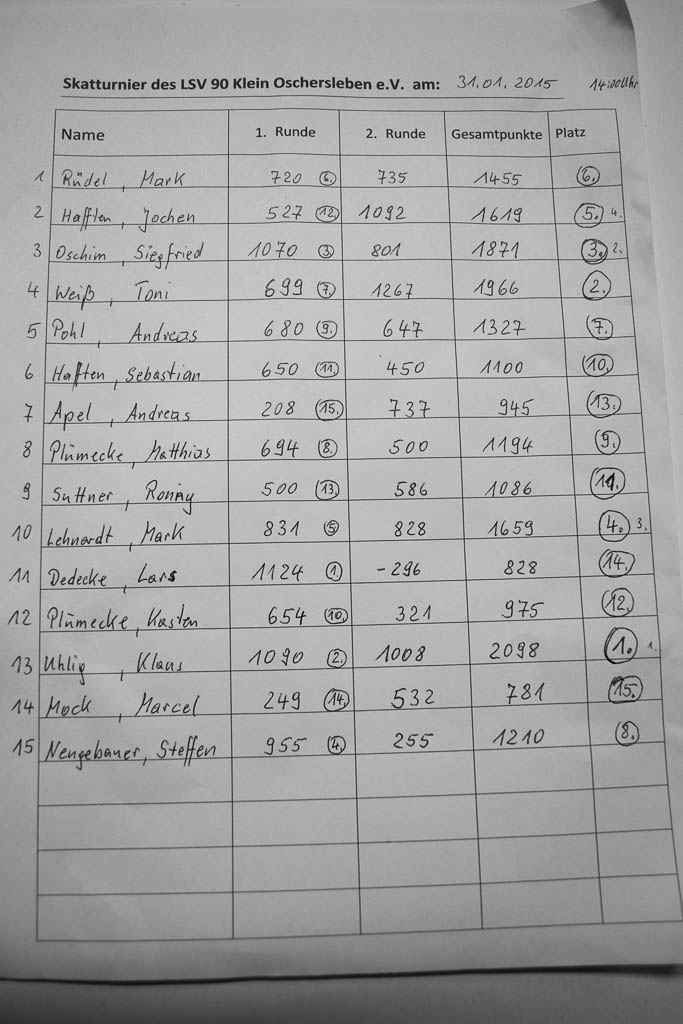 Skatturnier des LSV 90 Klein Oschersleben e.V. am: 31.01.2015 14:00Uhr
Name 1. Runde 2. Runde Gesamtpunkte Platz
1 Rüdel, Mark 720 6. 735 1455 6.
2 Hafften, Jochen 527 12. 1092 1619 5. 4.
3 Oschim, Siegfried 1070 3. 801 1871 3. 2.
4 Weiß, Toni 699 7. 1267 1966 2.
5 Pohl, Andreas 680 9. 647 1327 7.
6 Hafften, Sebastian 650 11. 450 1100 10.
7 Apel, Andreas 208 15. 737 945 13.
8 Plümecke, Matthias 694 8. 500 1194 9.
9 Suttner, Ronny 500 13. 586 1086 11.
10 Lehnardt, Mark 831 5 828 1659 4. 3.
11 Dedecke, Lars 1124 1. -296 828 14.
12 Plümecke, Kasten 654 10. 321 975 12.
13 Uhlig, Klaus 1090 2. 1008 2098 1. 1.
14 Mock, Marcel 249 14. 532 781 15.
15 Neugebauer, Steffen 955 4. 255 1210 8.